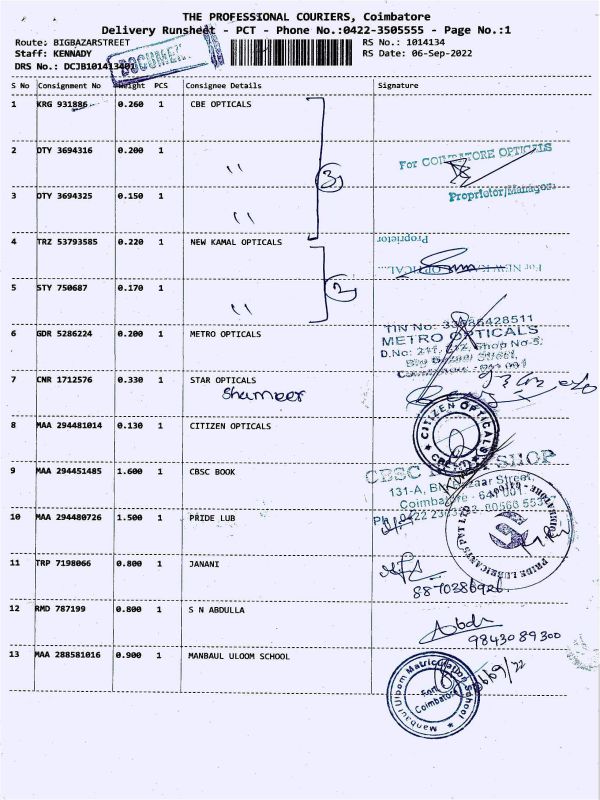 THE PROFESSIONAL COURIERS, Coimbatore
Delivery Runsheet - PCT - Phone No.:0422-3505555 - Page No.:1
Route: BIGBAZARSTREET RS No.: 1014134
Staff: KENNADY RS Date: 06-Sep-2022
DRS No.: DCJB101413401
DOCUMEN
S No Consignment No Weight PCS Consignee Details Signature
1 KRG 931886 0.260 1 CBE OPTICALS
2 DTY 3694316 0.200 1 〃
For COIMBATORE OPTICALS
3
Proprietor/Manager
3 DTY 3694325 0.150 1 〃
4 TRZ 53793585 0.220 1 NEW KAMAL OPTICALS
Proprietor
For NEW KAMAL OPTICAL
5 STY 750687 0.170 1 〃
2
6 GDR 5286224 0.200 1 METRO OPTICALS
TIN No: 33686428511
METRO OPTICALS
Shop No-5,
Big Bazaar Street,
7 CNR 1712576 0.330 1 STAR OPTICALS
Shameer
8 MAA 294481014 0.130 1 CITIZEN OPTICALS
CITIZEN OPTICALS
9 MAA 294451485 1.600 1 CBSC BOOK
CBSC SHOP
131-A, Bazaar Street,
Coimbatore - 641 001
10 MAA 294480726 1.500 1 PRIDE LUB
PRIDE LUBRICANTS PVT LTD
11 TRP 7198066 0.800 1 JANANI
8870386926
12 RMD 787199 0.800 1 S N ABDULLA
Abdu
9843089300
13 MAA 288581016 0.900 1 MANBAUL ULOOM SCHOOL
Manbaul Uloom Matriculation School
Fort
Coimbatore